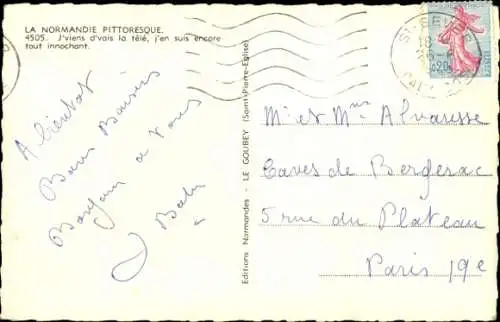 LA NORMANDIE PITTORESQUE.
4505. J'viens d'vais la télé, j'en suis encore
tout innochant.
A bientôt
Bons Baisers
à vous
Editions Normandes - LE GOUBEY (Saint-Pierre-Eglise)
0,20
Mr et Mme Alvaresse
Caves de Bergerac
5 rue du Plateau
Paris 19e